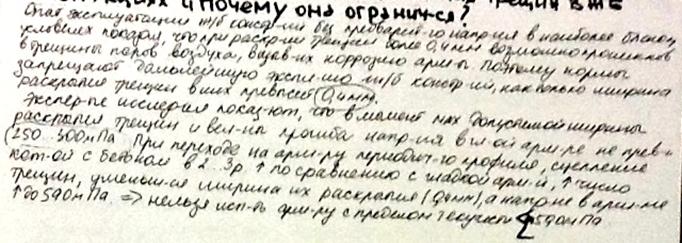 и почему она огранич-ся?
Опыт эксплуатации ж/б констр-ий без предварит-го напр-ия в наиболее благоп.
условиях показал, что при раскрытии трещин более 0,4мм возможно проникнов.
в трещины паров воздуха, вызыв-их коррозию арм-ры. Поэтому нормы
запрещают дальнейшую экспл-ию ж/б констр-ий, как только ширина
раскрытия трещин в них превысит 0,4мм.
Экспер-ые исследования показ-ют, что в момент мах допустимой ширины
раскрытия трещин и вел-ны прогиба напр-ия в арм-ре не прев-
(250...300мПа. При переходе на арм-ру периодич-го профиля, сцепление
кот-ой с бетоном в 2..3р ↑ по сравнению с гладкой арм-й, ↑ число
трещин, уменьш-ся ширина их раскрытия (0,4мм), а напр-ие в арм-ре
↑ до 590мПа. => нельзя исп-ть арм-ру с пределом текучести 590мПа